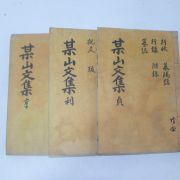 某山文集 亨
祝文 跋
某山文集 利
行狀 墓碣銘
行錄 附錄
墓誌
某山文集 貞